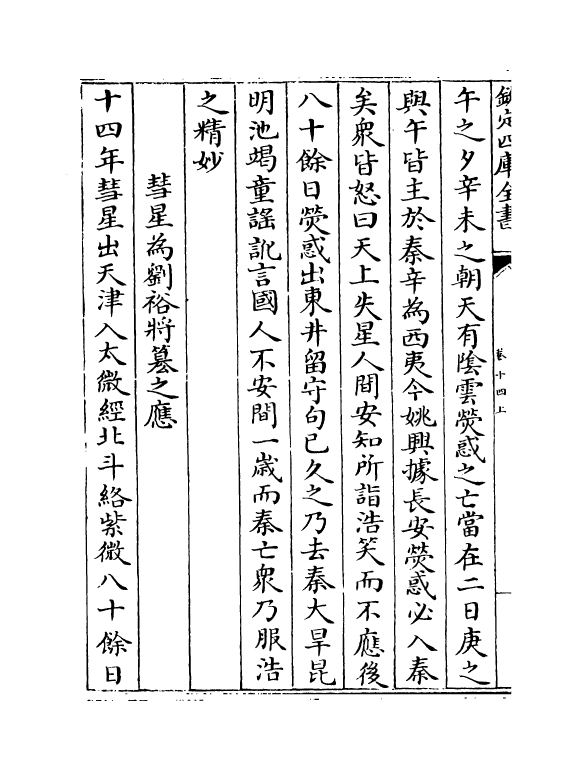 欽定四庫全書
卷十四上
午之夕辛未之朝天有隂雲熒惑之亡當在二日庚之
與午皆主於秦辛為西夷今姚興據長安熒惑必入秦
矣衆皆怒曰天上失星人間安知所詣浩笑而不應後
八十餘日熒惑出東井留守句已久之乃去秦大旱昆
明池竭童謡訛言國人不安間一嵗而秦亡衆乃服浩
之精妙
彗星為劉裕將簒之應
十四年彗星出天津入太微經北斗絡紫微八十餘日